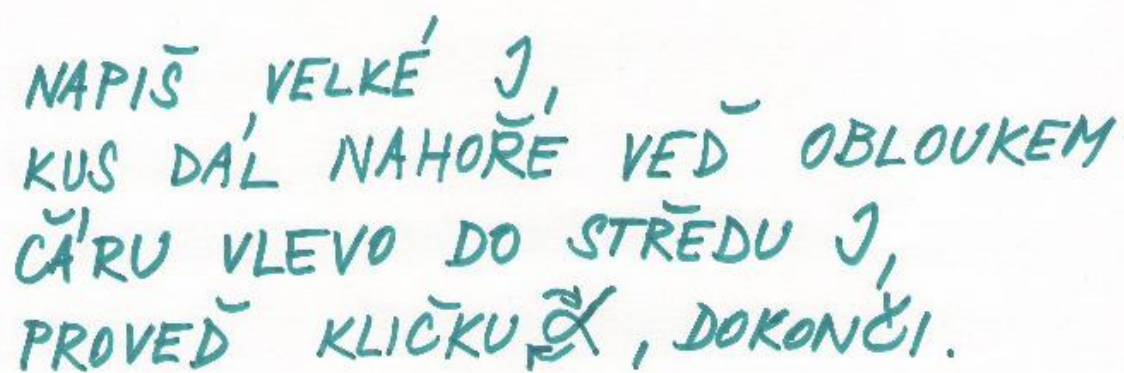 NAPIŠ VELKÉ J,
KUS DÁL NAHOŘE VEĎ OBLOUKEM
ČÁRU VLEVO DO STŘEDU J,
PROVEĎ KLIČKU, DOKONČI.